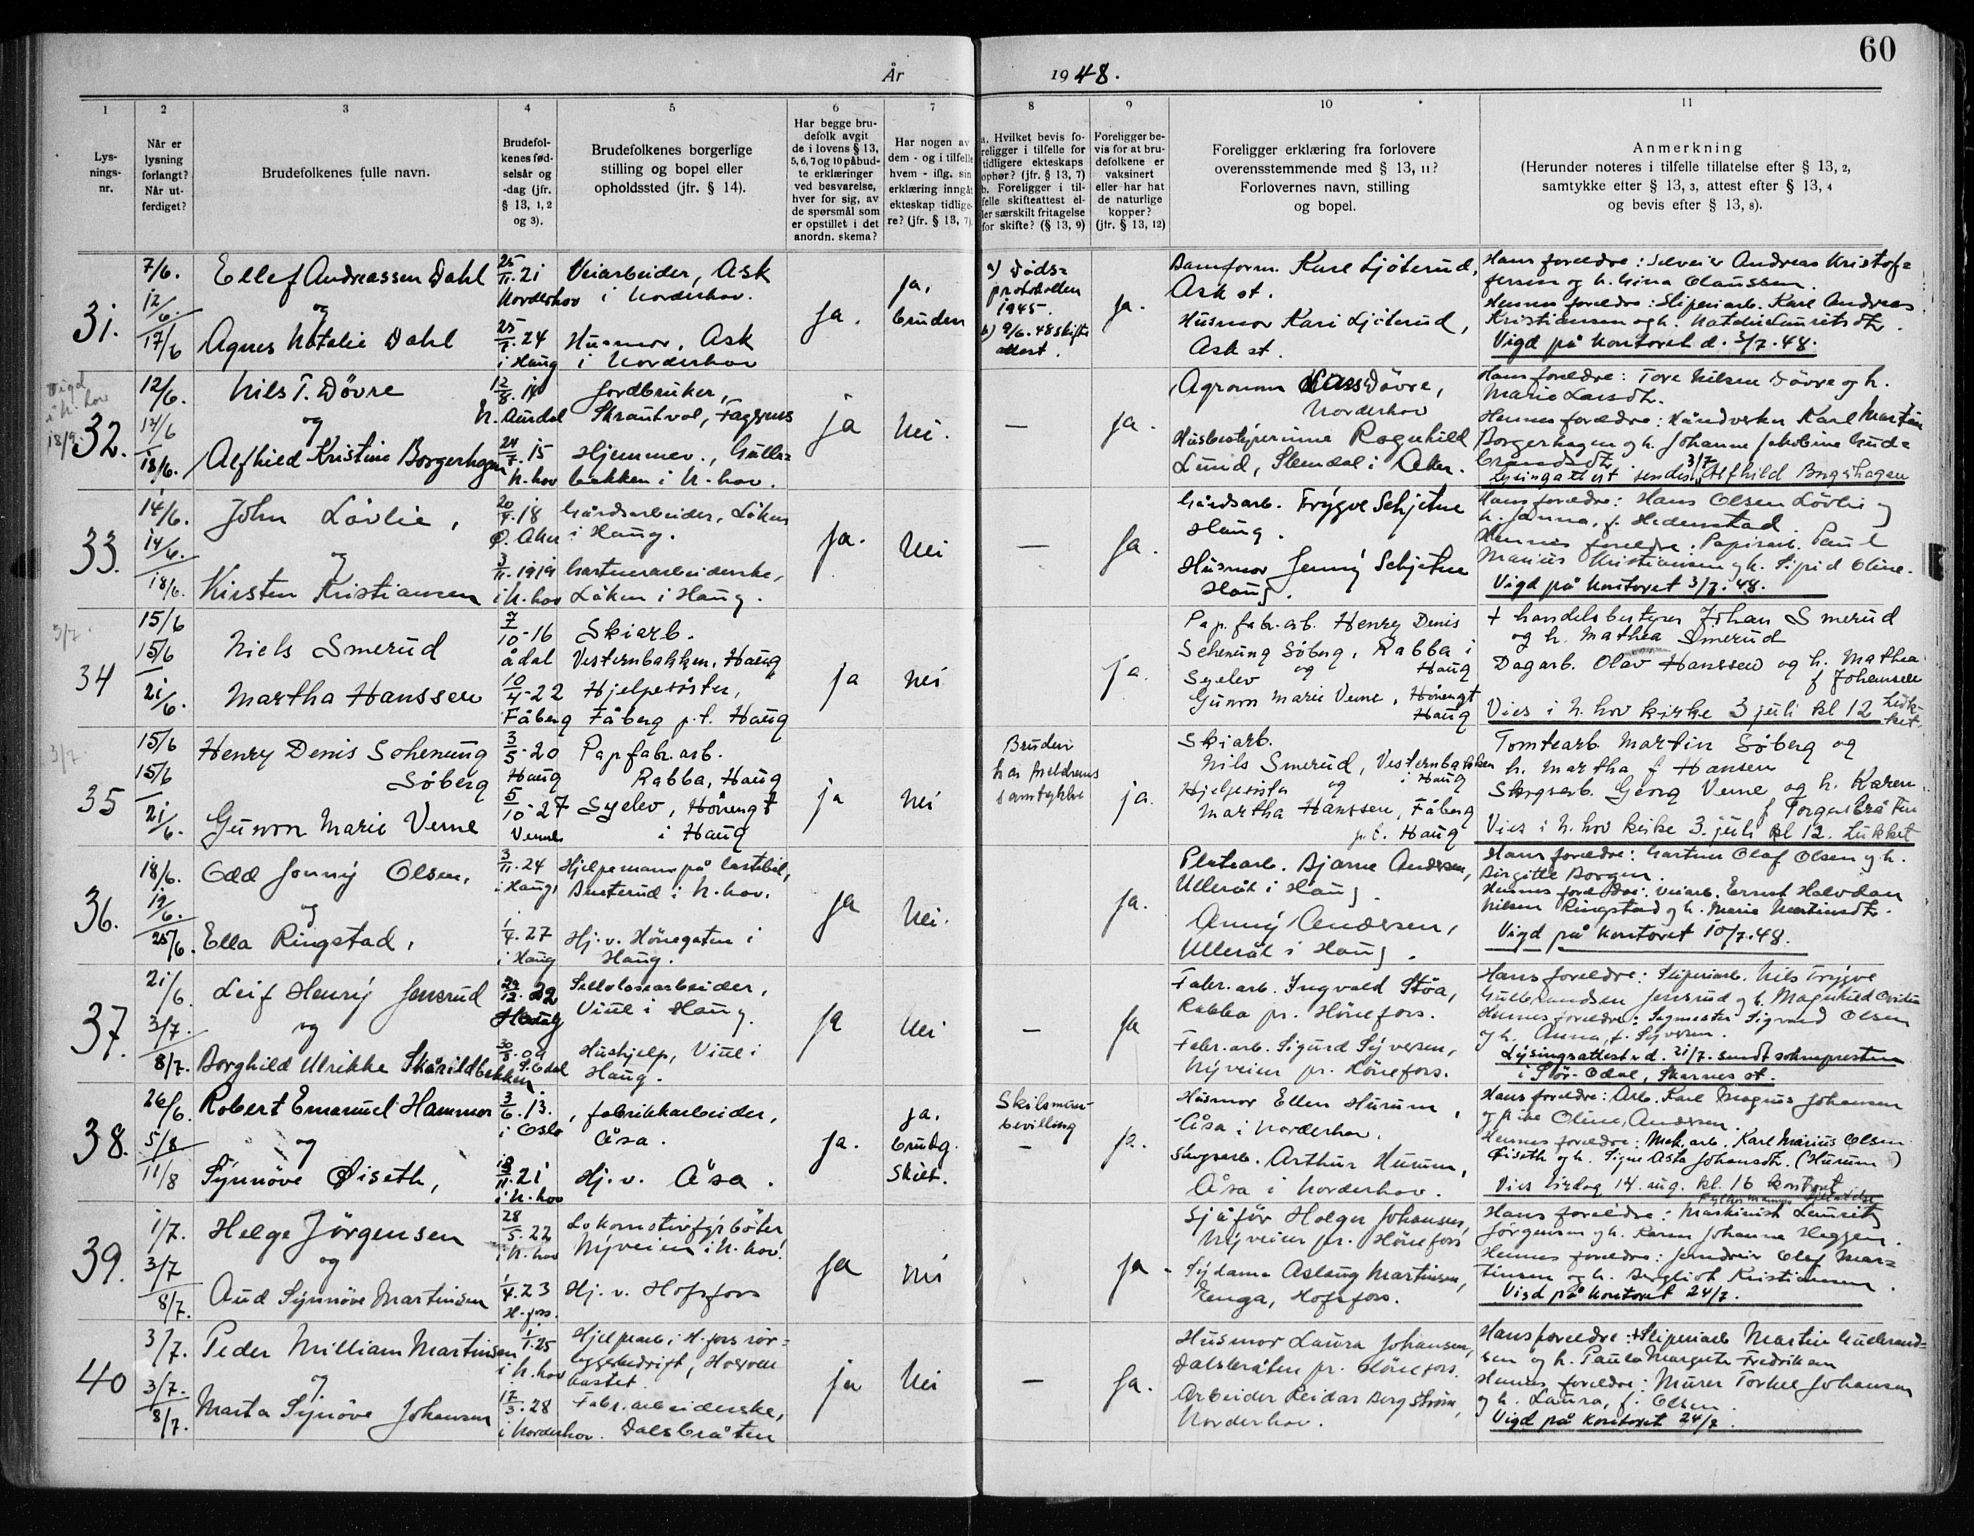 60
År 1948.
1 2 3 4 5 6 7 8 9 10 11
Lys-
nings-
nr.
Når er
lysning
forlangt?
Når ut-
ferdiget?
Brudefolkenes fulle navn.
Brudefol-
kenes fød-
selsår og
-dag (jfr.
§ 13, 1, 2
og 3).
Brudefolkenes borgerlige
stilling og bopel eller
opholdssted (jfr. § 14).
Har begge bru-
defolk avgit
de i lovens § 13,
5, 6, 7 og 10 påbud-
te erklæringer
ved besvarelse,
hver for sig, av
de spørsmål som
er opstillet i det
anordn. skema?
Har nogen av
dem - og i tilfelle
hvem - iflg. sin
erklæring inngåt
ekteskap tidlige-
re? (jfr. § 13, 7).
a. Hvilket bevis fo-
religger i tilfelle for
tidligere ekteskaps
ophør? (jfr. § 13, 7)
b. Foreligger i til-
felle skifteattest el-
ler særskilt fritagelse
for skifte? (§ 13, 9)
Foreligger be-
vis for at bru-
defolkene er
vaksinert
eller har hat
de naturlige
kopper?
(jfr. § 13, 12)
Foreligger erklæring fra forlovere
overensstemmende med § 13, 11?
Forlovernes navn, stilling
og bopel.
Anmerkning
(Herunder noteres i tilfelle tillatelse efter § 13, 2,
samtykke efter § 13, 3, attest efter § 13, 4
og bevis efter § 13, 8).
31.
7/6.
12/6.
17/6
Ellef Andreassen Dahl
og
Agnes Natalie Dahl
25/11.21
Norderhov
25/7.24
i Haug
Veiarbeider, Ask
i Norderhov.
Husmor, Ask
i Norderhov
Ja.
Ja,
bruden
a) Døds-
protokollen
1945.
b) 9/6.48 skifte
attest.
Ja.
Damform. Karl Ljøterud,
Ask st.
Husmor Kari Ljøterud,
Ask st.
Hans foreldre: Selveier Andreas Kristof-
fersen og h. Gina Olaussen.
Hennes foreldre: Sliperiarb. Karl Andreas
Kristiansen og h. Natalie Lauritsdtr.
Vigd på kontoret d. 3/7.48.
Vigd
i N. hov
18/9.
32.
12/6.
14/6
18/6.
Nils T. Døvre
og
Alfhild Kristine Borgerhagen
12/8.14
N. Aurdal
24/7.15
N. hov
Jordbruker,
Skrautvol, Fagernes
Hjemmev., Gulls-
bakken i N. hov.
Ja
Nei.
—
Ja.
Agronom Lars Døvre,
Norderhov
Husbestyrerinne Ragnhild
Lund, Slemdal i Aker.
Hans foreldre: Tore Nilsen Døvre og h.
Marie Larsdtr.
Hennes foreldre: Håndverker Karl Martin
Borgerhagen og h. Johanne Jakobine Gud-
brandsdtr
Lysingattest sendes 3/7 Alfhild Borgerhagen
33.
14/6.
14/6.
18/6.
John Løvlie,
og
Kirsten Kristiansen
20/4.18
Ø. Aker
3/11.1919
i N. hov
Gårdsarbeider, Løken
i Haug.
Gartnerarbeiderske,
Løken i Haug.
Ja.
Nei
—
Ja.
Gårdsarb. Trygve Schjetne
Haug.
Husmor Jenny Schjetne
Haug.
Hans foreldre: Hans Olsen Løvlie og
h. Janna, f. Hedenstad.
Hennes foreldre: Papirarb. Paul
Marius Kristiansen og h. Sigrid Oline.
Vigd på kontoret 3/7.48.
3/7.
34
15/6
15/6
21/6.
Niels Smerud
Martha Hanssen
7/10-16
Ådal
10/4-22
Fåberg
Skiarb.
Vesternbakken, Haug
Hjelpesøster,
Fåberg p.t. Haug
ja
nei
ja.
Pap.fabr.arb. Henry Denis
Schenung Søberg, Rabba i
Haug
og
Syelev
Gunvor Marie Verne, Hønengt
Haug
+ handelsbestyrer Johan Smerud
og h. Mathea Smerud
Dagarb. Olav Hanssen og h. Mathea
f Johansen
Vies i N. hov kirke 3 juli kl 12 Luk-
ket.
3/7.
35
15/6
15/6
21/6.
Henry Denis Schenung
Søberg
Gunvor Marie Verne
3/5-20
Haug
5/10-27
Verne
Pap fabr. arb.
Rabba, Haug
Syelev, Hønengt
i Haug
ja
nei
Bruden
har foreldrenes
samtykke
ja.
Skiarb.
Nils Smerud, Vesternbakken
i Haug
Hjelpesøster og
Martha Hanssen, Fåberg
p.t. Haug
Tomtearb. Martin Søberg og
h. Martha f Hansen
Skogsarb. Georg Verne og h. Karen
f Torgersbråten
Vies i N. hov kirke 3. juli kl 12. Lukket
36.
18/6.
19/6.
25/6.
Odd Jonny Olsen,
og
Ella Ringstad,
3/11.24
i Haug
1/4.27
i Haug
Hjelpemann på lastebil,
Busterud i N. hov.
Hj. v. Hønegaten i
Haug.
Ja
Nei.
Ja.
Platearb. Bjarne Andersen,
Ullerål i Haug.
Anny Andersen,
Ullerål i Haug.
Hans foreldre: Gartner Olaf Olsen og h.
Birgitte Borgen.
Hennes foreldre: Veiarb. Ernst Halvdan
Nilsen Ringstad og h. Marie Martinsdtr.
Vigd på kontoret 10/7.48.
37.
21/6.
3/7.
8/7.
Leif Henry Jensrud
og
Borghild Ulrikke Skårildbekken
29/12.22
Haug
30/8.09
S. Odal
Sellulosearbeider,
Viul i Haug.
Hushjelp, Viul i
Haug.
Ja
Nei
—
Ja
Fabr. arb. Ingvald Støa,
Rabba pr. Hønefoss.
Fabr. arb. Sigurd Syversen,
Nyveien pr. Hønefoss.
Hans foreldre: Sliperiarb. Nils Trygve
Gulbrandsen Jensrud og h. Magnhild
Hennes foreldre: Sagmester Sigvard Olsen
og h. Anna, f. Syversen.
Lysingsattest d. 21/7. sendt soknepresten
i Sør-Odal, Skarnes st.
38.
26/6.
5/8
11/8
Robert Emanuel Hammer
og
Synnøve Øiseth,
3/6.13.
i Oslo
/11.21
i N. hov
fabrikkarbeider,
Åsa.
Hj. v. Åsa.
Ja.
Ja.
brudg.
skilt.
Skilsmis-
bevilling
—
Ja.
Husmor Ellen Hurum,
Åsa i Norderhov.
Skogsarb. Arthur Hurum,
Åsa i Norderhov.
Hans foreldre: Arb. Karl Magnus Johansen
og pike Oline Andersen.
Hennes foreldre: Mek. arb. Karl Marius Olsen
Øiseth og h. Signe Asta Johansdtr. (Hurum)
Vies lørdag 14. aug. kl. 16 kontoret
39.
1/7.
3/7
8/7.
Helge Jørgensen
og
Aud Synnøve Martinsen
28/5.22
i N. hov
1/4.23
H. foss.
Lokomotivfyrbøter
Nyveien i N. hov.
Hj. v. Hofsfoss
Ja
Nei
—
Ja.
Sjåfør Holger Johansen,
Nyveien pr. Hønefoss
Sydame Aslaug Martinsen,
Enga, Hofsfoss.
Fylkesmannens tillatelse
Hans foreldre: Maskinist Laurits
Jørgensen og h. Karen Johanne Heggen.
Hennes foreldre: Jerndreier Olaf Mar-
tinsen og h. Bergliot Kristiansen.
Vigd på kontoret 24/7.
40
3/7.
3/7.
8/7.
Peder William Martinsen
og
Marta Synøve Johansen
1/1.25
i N. hov
17/3.28
i Norderhov.
Hjelpearb. i H. foss rør-
leggerbedrift, Hovsen-
kastet.
Fabr. arbeiderske,
Dalsbråten
ja
Nei
—
Ja.
Husmor Laura Johansen,
Dalsbråten pr. Hønefoss.
Arbeider Reidar Bergstrøm,
Norderhov.
Hans foreldre: + Sliperiarb Martin Gudbrand-
sen og h. Paula Margrete Fredriksen
Hennes foreldre: Murer Torkel Johansen
og h. Laura, f. Olsen.
Vigd på kontoret 24/7.